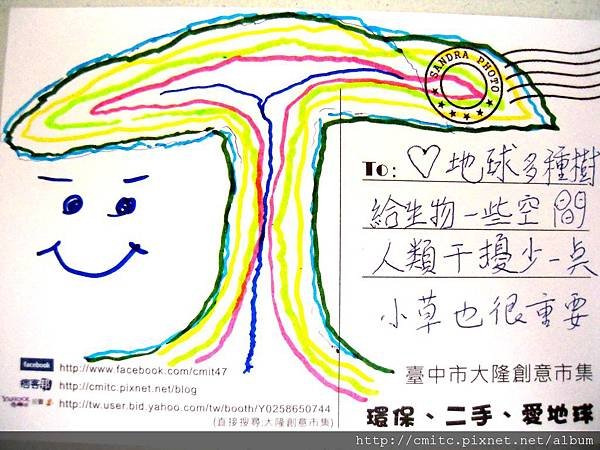 SANDRA PHOTO
To: ♡地球多種樹
給生物一些空間
人類干擾少一点
小草也很重要
facebook http://www.facebook.com/cmit47
痞客邦 http://cmitc.pixnet.net/blog
YAHOO! http://tw.user.bid.yahoo.com/tw/booth/Y0258650744
(直接搜尋:大隆創意市集)
臺中市大隆創意市集
環保、二手、愛地球
http://cmitc.pixnet.net/album